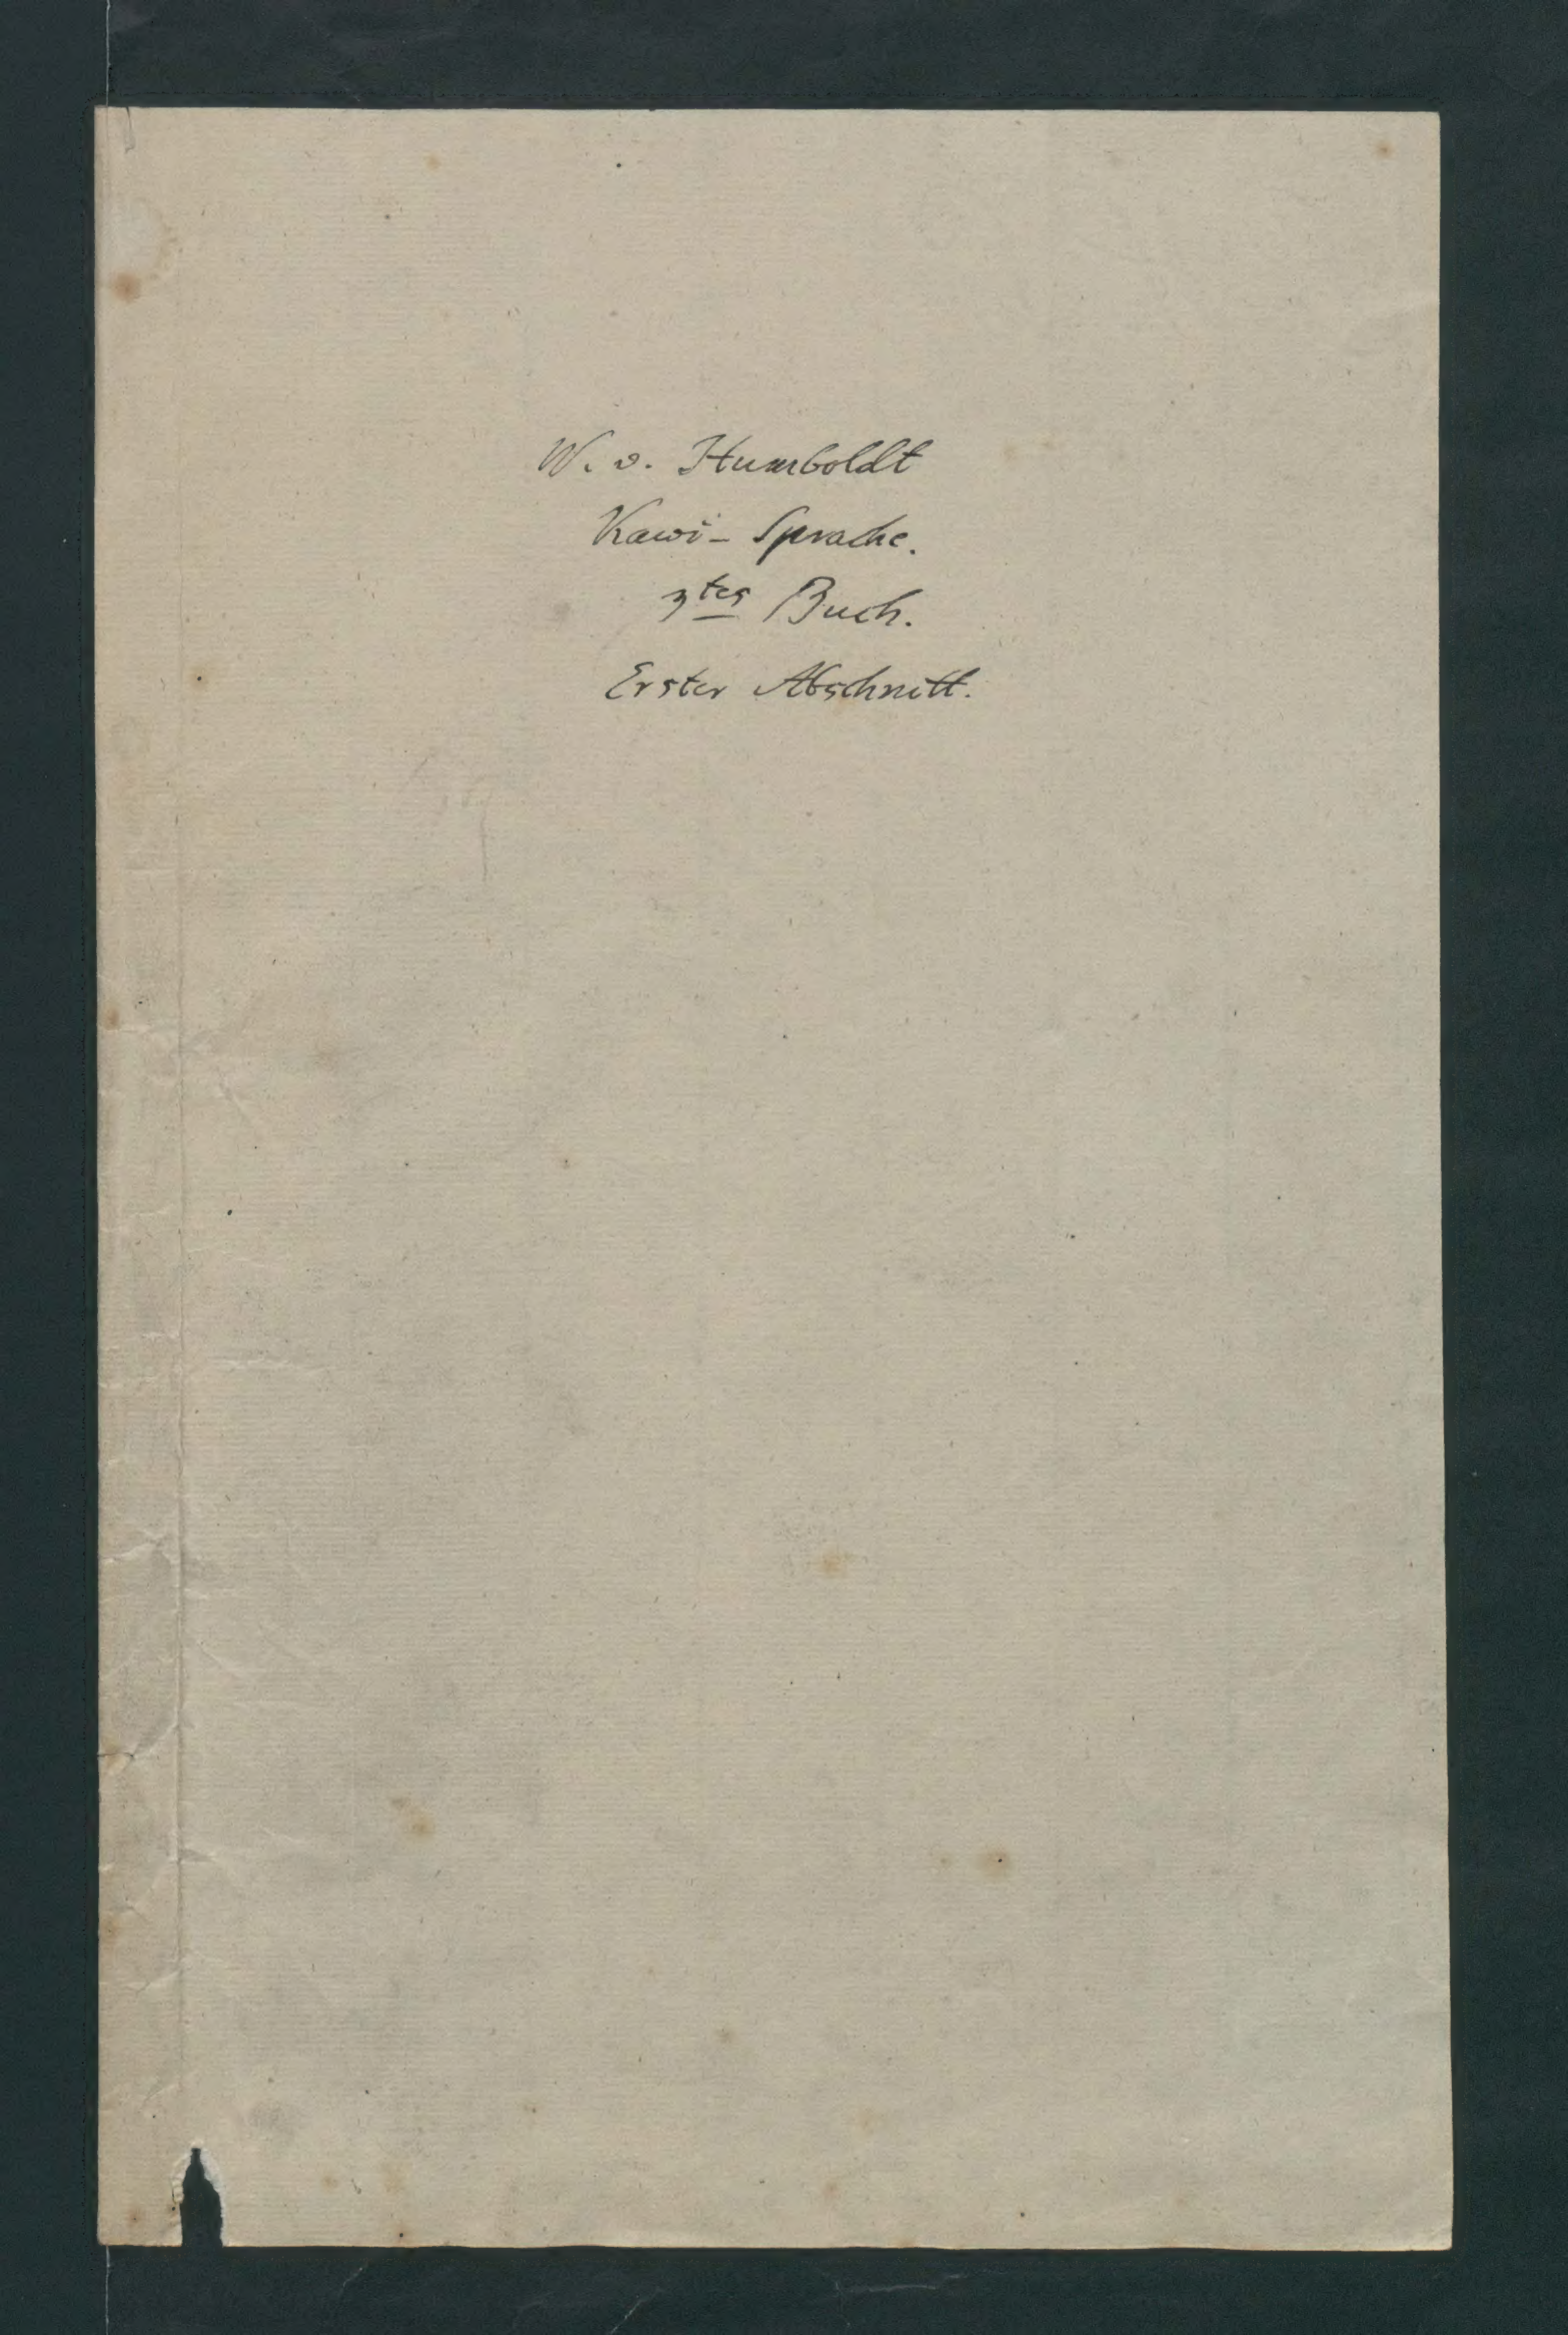 W. v. Humboldt
Kawi-Sprache.
3tes Buch.
Erster Abschnitt.